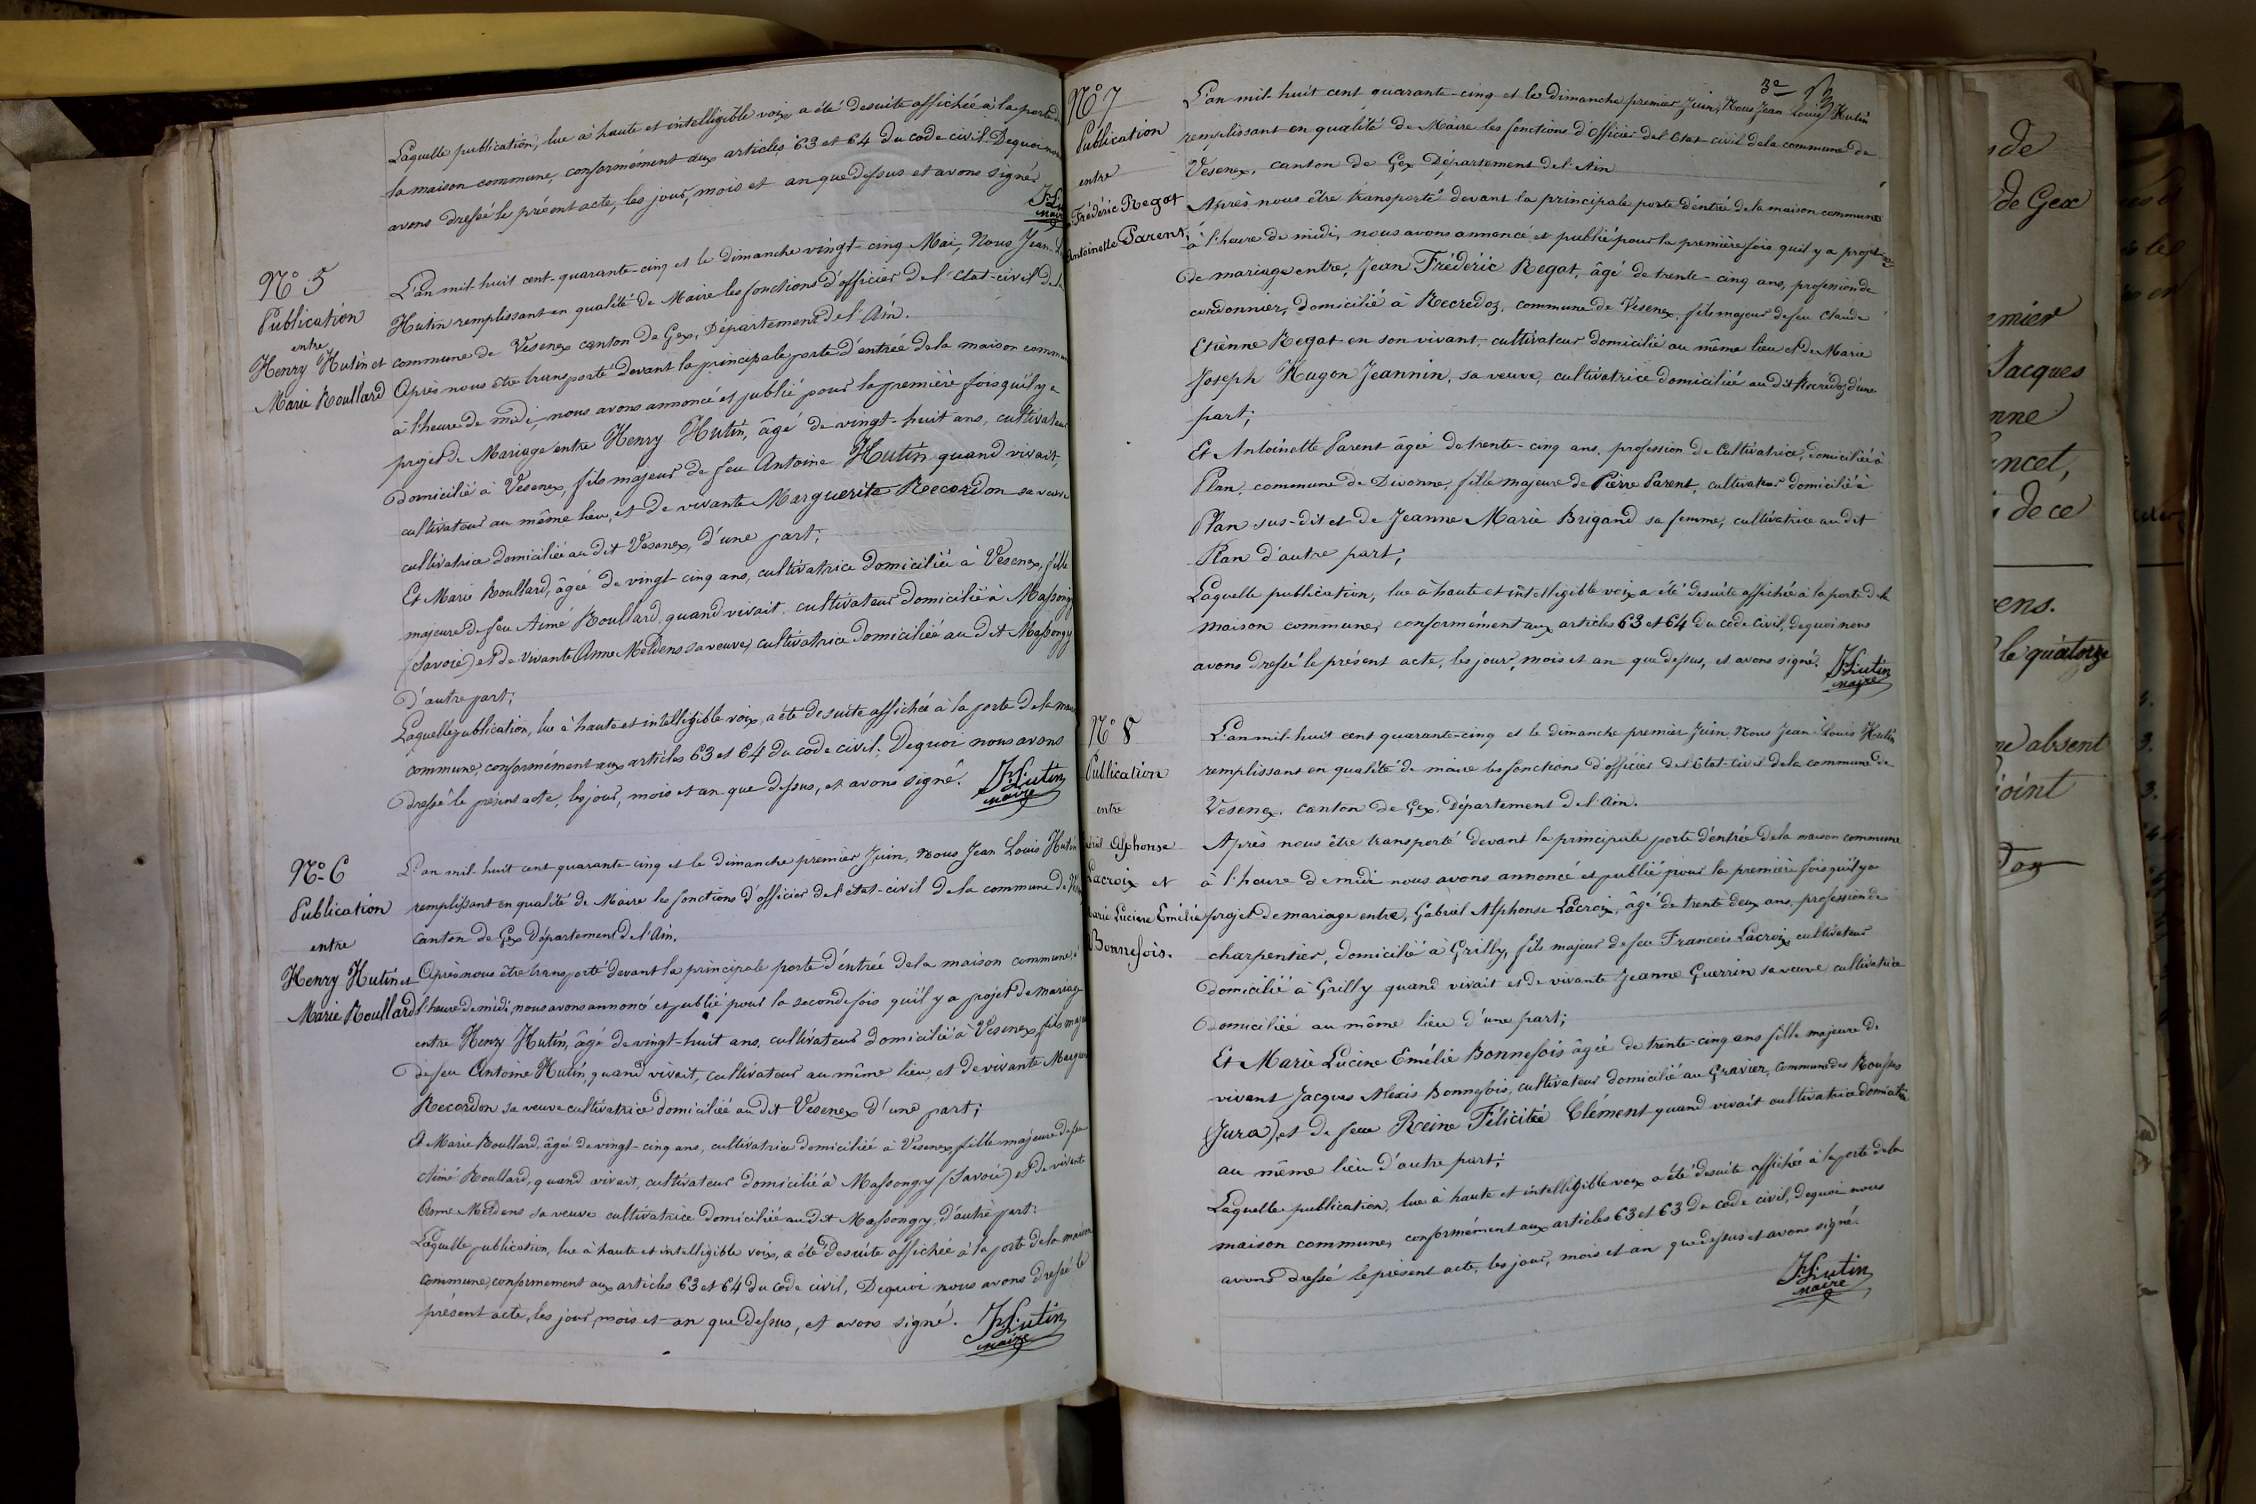 Laquelle publication, lue à haute et intelligible voix a été desuite affichée à la porte de
la maison commune, conformément aux articles 63 et 64 du code civil. Dequoi nous
avons dressé le présent acte, les jour, mois et an que dessus et avons signé.
maire
N° 5
Publication
entre
Henry Hutin et
Marie Roullard
L'an mil huit cent-quarante-cinq et le dimanche vingt-cinq Mai, Nous Jean-
Hutin remplissant en qualité de Maire les fonctions d'officier de l'Etat-civil de la
commune de Vesenex canton de Gex, Département de l'Ain.
Après nous être transporté devant la principale porte d'entrée dela maison comm
à l'heure de midi, nous avons annoncé et publié pour la première fois qu'il y a
projet de Mariage entre Henry Hutin, âgé de vingt-huit ans, cultivateur
domicilié à Vesenex, fils majeur de feu Antoine Hutin quand vivait,
cultivateur au même lieu, et de vivante Marguerite Recordon sa veuve
cultivatrice domiciliée au dit Vesenex, d'une part;
Et Marie Roullard, âgée de vingt-cinq ans, cultivatrice domiciliée à Vesenex, fille
majeure de feu Aimé Roullard, quand vivait, cultivateur domicilié à Massongy
(Savoie) et de vivante Anne Meldens sa veuve, cultivatrice domiciliée au dit Massongy
d'autre part;
Laquelle publication, lue à haute et intelligible voix, a été desuite affichée à la porte dela mai
commune, conformément aux articles 63 et 64 du code civil. Dequoi nous avons
dressé le présent acte, les jour, mois et an que dessus, et avons signé. JLHutin
maire
N° 6
Publication
entre
Henry Hutin et
Marie Roullard
L'an mil-huit cent-quarante-cinq et le dimanche premier Juin, Nous Jean Louis Hutin
remplissant en qualité de Maire les fonctions d'officier de l'état-civil dela commune de
canton de Gex Département de l'Ain.
Après nous être transporté devant la principale porte d'entrée dela maison commune à
l'heure de midi, nous avons annoncé et publié pour la seconde fois qu'il y a projet de mariage
entre Henry Hutin, âgé de vingt-huit ans, cultivateur domicilié à Vesenex, fils maje
de feu Antoine Hutin, quand vivait, cultivateur au même lieu, et de vivante Margue
Recordon sa veuve cultivatrice domiciliée au dit Vesenex d'une part;
Et Marie Roullard, âgée de vingt-cinq ans, cultivatrice domiciliée à Vesenex, fille majeure de feu
Aimé Roullard, quand vivait, cultivateur domicilié à Massongy (Savoie) et de vivante
Anne Meldens sa veuve cultivatrice domiciliée au dit Massongy, d'autre part;
Laquelle publication, lue à haute et intelligible voix, a été desuite affichée à la porte dela maison
commune, conformement aux articles 63 et 64 du code civil, Dequoi nous avons dressé le
présent acte, les jour, mois et an que dessus, et avons signé. JLHutin
maire
3e
N° 7
Publication
entre
Frédéric Regat
Antoinette Parent
L'an mil-huit cent quarante-cinq et le dimanche premier Juin, Nous Jean Louis Hutin
remplissant en qualité de Maire les fonctions d'Officier del'Etat-civil dela commune de
Vesenex, canton de Gex Département de l'Ain
Après nous être transporté devant la principale porte d'entrée dela maison commune
à l'heure de midi, nous avons annoncé et publié pour la première fois qu'il y a projet
de mariage entre, Jean Frédéric Regat, âgé de trente-cinq ans, profession de
cordonnier, domicilié à Recredoz, commune de Vesenex, fils majeur de feu Claude
Etienne Regat en son vivant, cultivateur domicilié au même lieu et de Marie
Joseph Hugon Jeannin, sa veuve, cultivatrice domiciliée au dit Recredoz d'une
part;
Et Antoinette Parent âgée de trente-cinq ans, profession de Cultivatrice, domiciliée à
Plan, commune de Divonne, fille majeure de Pierre Parent, cultivateur domicilié à
Plan sus-dit et de Jeanne Marie Brigand sa femme, cultivatrice au dit
Plan d'autre part;
Laquelle publication, lue à haute et intelligible voix a été desuite affichée à la porte dela
maison commune, conformément aux articles 63 et 64 du code civil, dequoi nous
avons dressé le présent acte, les jour, mois et an que dessus, et avons signé. JLHutin
maire
N° 8
Publication
entre
Alphonse
Lacroix et
Marie Lucine Emélie
Bonnefois.
L'an mil-huit cent quarante-cinq et le dimanche premier Juin, Nous Jean-Louis Hutin
remplissant en qualité de maire les fonctions d'officier del'Etat-civil dela commune de
Vesenex, canton de Gex, Département de l'Ain.
Après nous être transporté devant la principale porte d'entrée dela maison commune
à l'heure de midi nous avons annoncé et publié pour la première fois qu'il y a
projet de mariage entre, Gabriel Alphonse Lacroix, âgé de trente deux ans, profession de
charpentier, domicilié à Grilly, fils majeur de feu Francois Lacroix cultivateur
domicilié à Grilly quand vivait et de vivante Jeanne Guerrin sa veuve cultivatrice
domiciliée au même lieu d'une part;
Et Marie Lucine Emélie Bonnefois âgée de trente-cinq ans fille majeure de
vivant Jacques Alexis Bonnefois, cultivateur domicilié au Gravier, commune des Rousses
(Jura), et de feue Reine Félicitée Clément quand vivait cultivatrice domiciliée
au même lieu d'autre part;
Laquelle publication, lue à haute et intelligible voix a été desuite affichée à la porte dela
maison commune, conformément aux articles 63 et 63 du code civil, dequoi nous
avons dressé le présent acte, les jour, mois et an que dessus et avons signé.
JLHutin
maire
de
de Gex
Jacques
de ce
le quatorze
absent